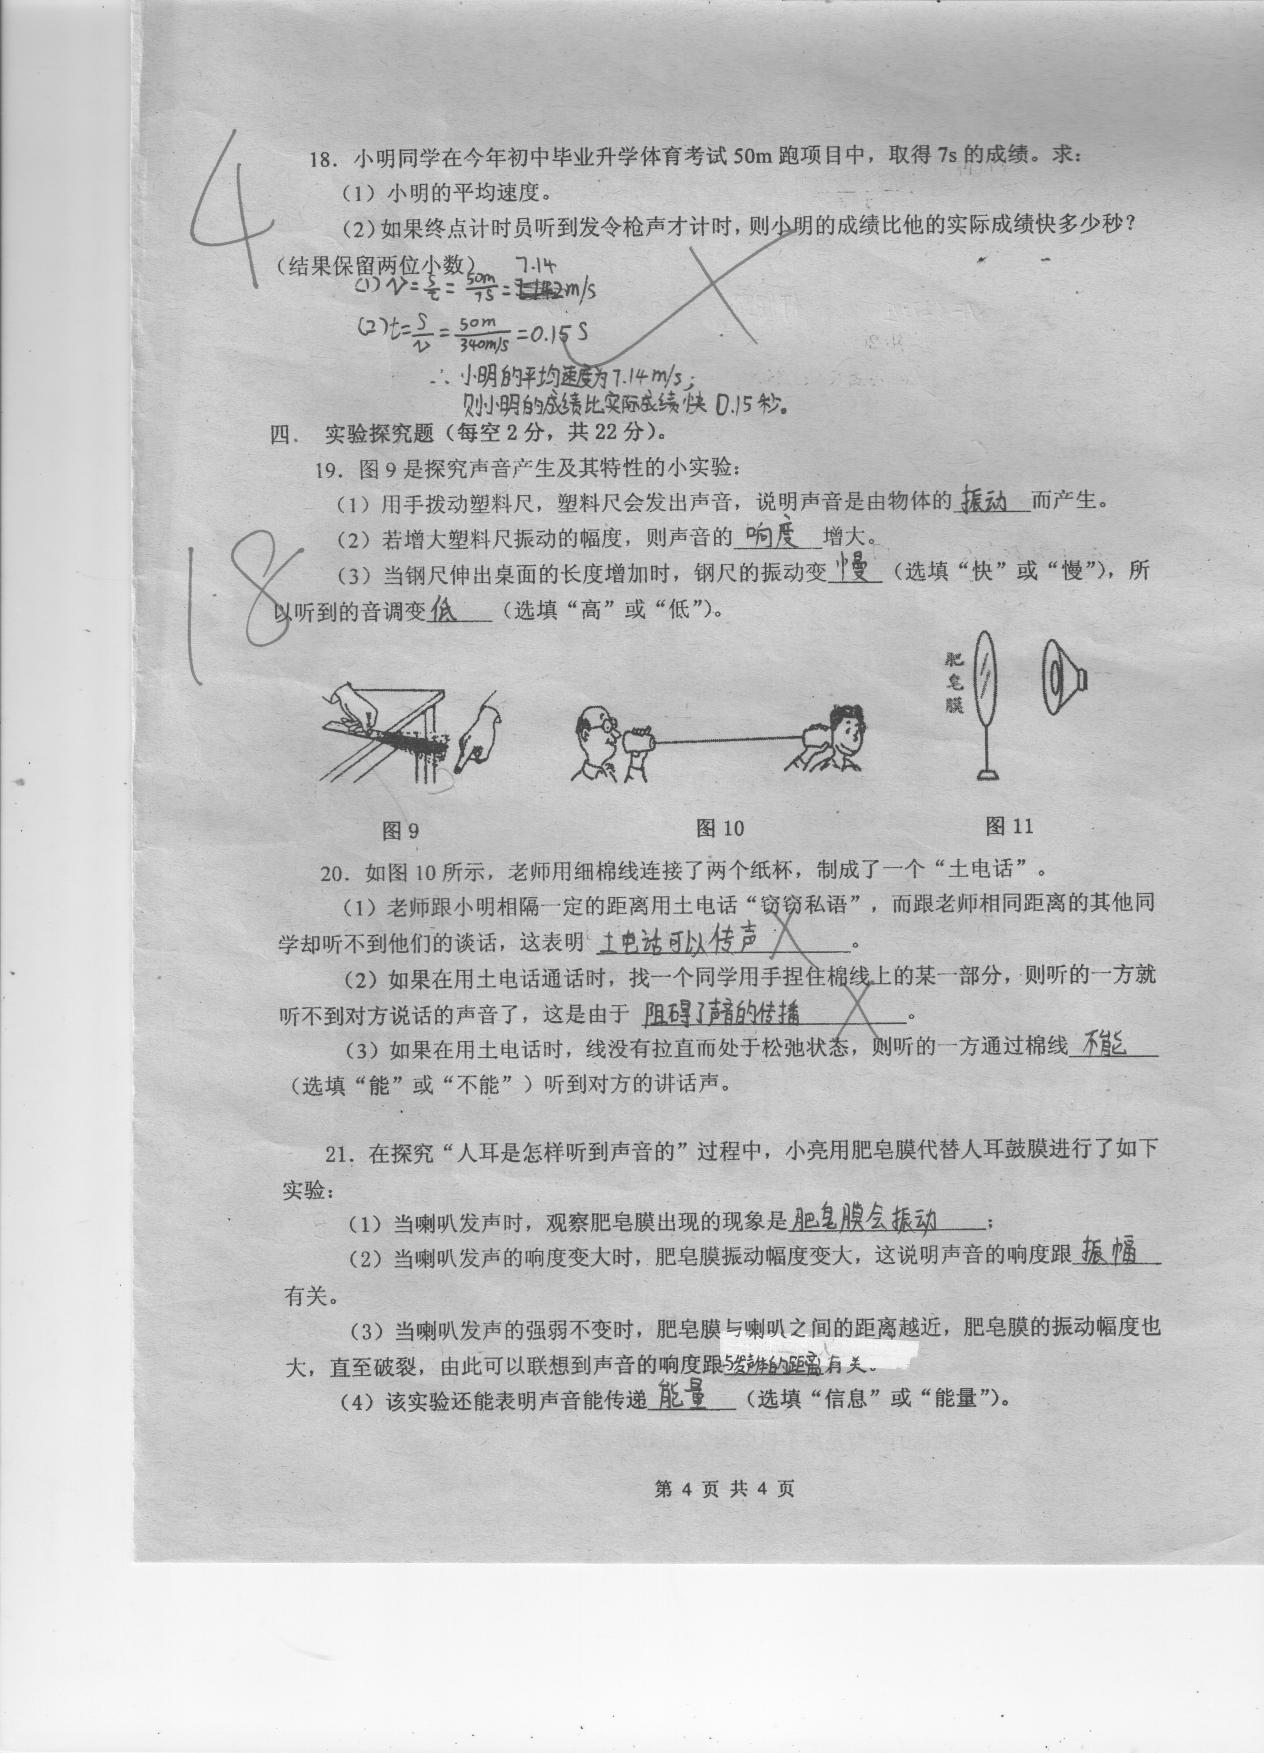 4
18．小明同学在今年初中毕业升学体育考试 50m 跑项目中，取得 7s 的成绩。求：
（1）小明的平均速度。
（2）如果终点计时员听到发令枪声才计时，则小明的成绩比他的实际成绩快多少秒？
（结果保留两位小数）
7.14
(1) v = s/t = 50m/7s = m/s
(2) t = s/v = 50m/340m/s = 0.15 s
∴ 小明的平均速度为7.14m/s；
则小明的成绩比实际成绩快 0.15秒。
四． 实验探究题（每空 2 分，共 22 分）。
18
19．图 9 是探究声音产生及其特性的小实验：
（1）用手拨动塑料尺，塑料尺会发出声音，说明声音是由物体的 振动 而产生。
（2）若增大塑料尺振动的幅度，则声音的 响度 增大。
（3）当钢尺伸出桌面的长度增加时，钢尺的振动变 慢 （选填“快”或“慢”），所
以听到的音调变 低 （选填“高”或“低”）。
肥皂膜
图 9
图 10
图 11
20．如图 10 所示，老师用细棉线连接了两个纸杯，制成了一个“土电话”。
（1）老师跟小明相隔一定的距离用土电话“窃窃私语”，而跟老师相同距离的其他同
学却听不到他们的谈话，这表明 土电话可以传声 。
（2）如果在用土电话通话时，找一个同学用手捏住棉线上的某一部分，则听的一方就
听不到对方说话的声音了，这是由于 阻碍了声音的传播 。
（3）如果在用土电话时，线没有拉直而处于松弛状态，则听的一方通过棉线 不能
（选填“能”或“不能”）听到对方的讲话声。
21．在探究“人耳是怎样听到声音的”过程中，小亮用肥皂膜代替人耳鼓膜进行了如下
实验：
（1）当喇叭发声时，观察肥皂膜出现的现象是 肥皂膜会振动 ；
（2）当喇叭发声的响度变大时，肥皂膜振动幅度变大，这说明声音的响度跟 振幅
有关。
（3）当喇叭发声的强弱不变时，肥皂膜与喇叭之间的距离越近，肥皂膜的振动幅度也
大，直至破裂，由此可以联想到声音的响度跟 与发声体的距离 有关。
（4）该实验还能表明声音能传递 能量 （选填“信息”或“能量”）。
第 4 页 共 4 页